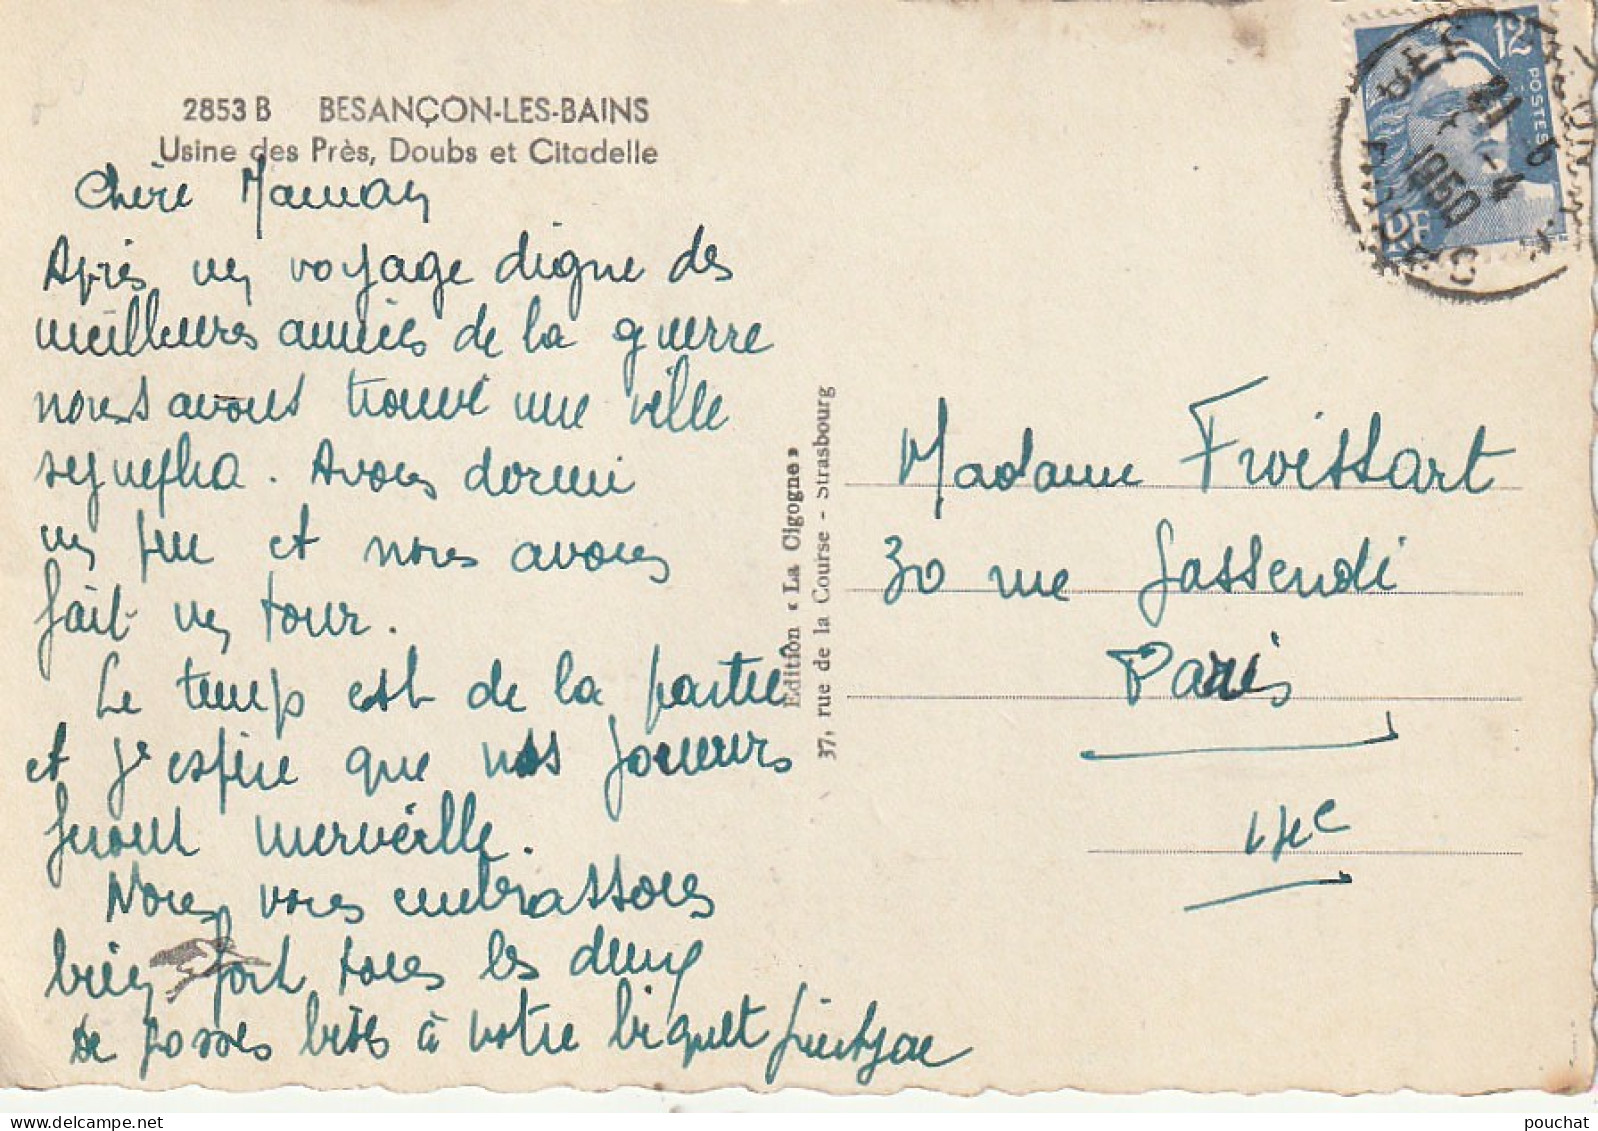 2853 B BESANÇON-LES-BAINS
Usine des Près, Doubs et Citadelle
Chère Maman
Après un voyage digne des
meilleures années de la guerre
nous avons trouvé une ville
sympha. Avons dormi
un peu et nous avons
fait un tour.
Le temps est de la partie
et j'espère que nos joueurs
feront merveille.
Nous vous embrassons
bien fort tous les deux
de grosses bises à votre
Edition « La Cigogne »
37, rue de la Course - Strasbourg
12
POSTES
RF
21
-4
1950
Madame Froissart
30 rue Gassendi
Paris
14e
pouchat